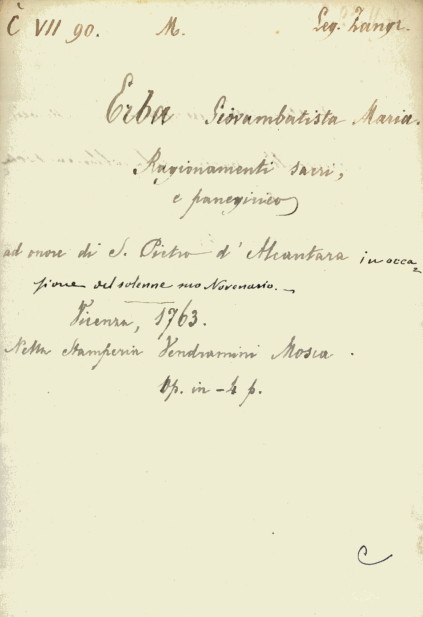 Č VII 90. M. Leg. Zangr.
Erba Giovambatista Maria.
Ragionamenti sacri,
e panegirico
ad onore di S. Pietro d'Alcantara in occa=
sione del solenne suo Novenario.
Vicenza, 1763.
Nella Stamperia Vendramini Mosca.
Op. in-4 p.
C